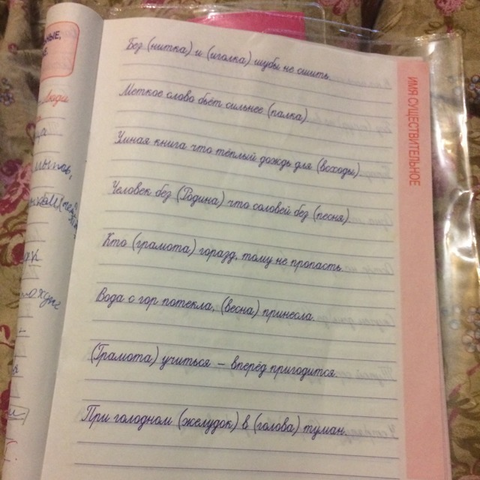 Без (нитка) и (иголка) шубы не сшить.
Меткое слово бьёт сильнее (палка)
Умная книга что тёплый дождь для (всходы)
Человек без (Родина) что соловей без (песня)
Кто (грамота) горазд, тому не пропасть.
Вода с гор потекла, (весна) принесла.
(Грамота) учиться — вперёд пригодится.
При голодном (желудок) в (голова) туман.
ИМЯ СУЩЕСТВИТЕЛЬНОЕ